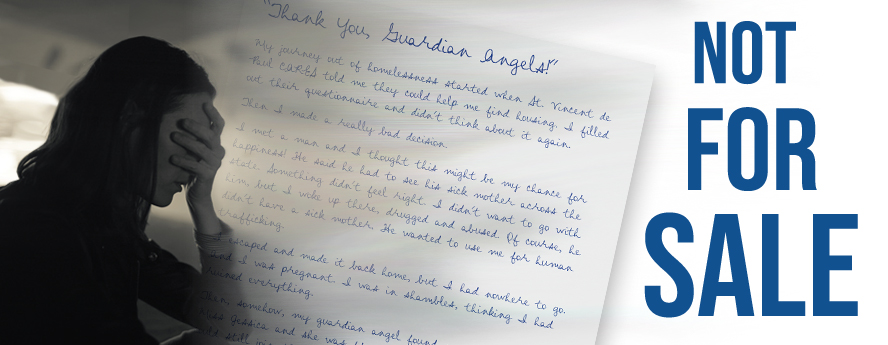 "Thank You, Guardian Angels!"
My journey out of homelessness started when St. Vincent de
Paul CARES told me they could help me find housing. I filled
out their questionnaire and didn't think about it again.
Then I made a really bad decision.
I met a man and I thought this might be my chance for
happiness! He said he had to see his sick mother across the
state. Something didn't feel right. I didn't want to go with
him, but I woke up there, drugged and abused. Of course, he
didn't have a sick mother. He wanted to use me for human
trafficking.
escaped and made it back home, but I had nowhere to go.
and I was pregnant. I was in shambles, thinking I had
ruined everything.
Then, somehow, my guardian angel found
Miss Jessica and she was
still
NOT
FOR
SALE